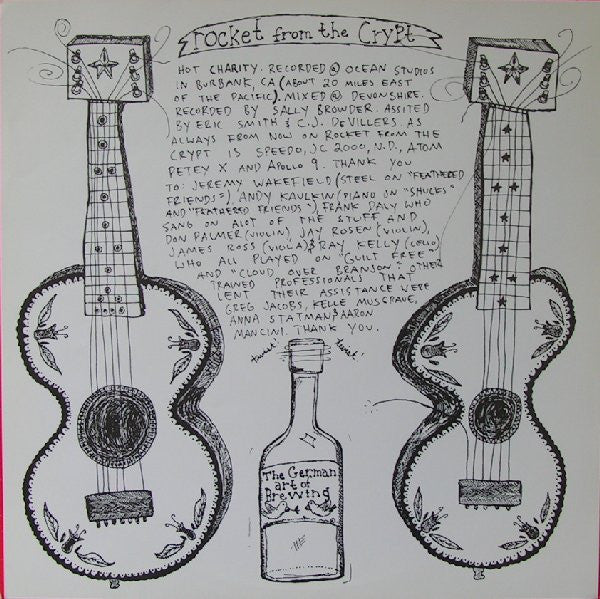 rocket from the Crypt
HOT CHARITY. RECORDED @ OCEAN STUDIOS
IN BURBANK, CA (ABOUT 20 MILES EAST
OF THE PACIFIC). MIXED @ DEVONSHIRE.
RECORDED BY SALLY BROWDER. ASSITED
BY ERIC SMITH & C.J. DEVILLERS. AS
ALWAYS FROM NOW ON ROCKET FROM THE
CRYPT IS SPEEDO, JC 2000, N.D., ATOM
PETEY X AND APOLLO 9. THANK YOU
TO: JEREMY WAKEFIELD (STEEL ON "FEATHERED
FRIENDS"), ANDY KAULKIN (PIANO ON "SHUCKS"
AND "FEATHERED FRIENDS") FRANK DALY WHO
SANG ON ALOT OF THE STUFF AND
DON PALMER (VIOLIN) JAY ROSEN (VIOLIN),
JAMES ROSS (VIOLA) & RAY KELLY (CELLO)
WHO ALL PLAYED ON "GUILT FREE"
AND "CLOUD OVER BRANSON." OTHER
TRAINED PROFESSIONALS THAT
LENT THEIR ASSISTANCE WERE
GREG JACOBS, KELLE MUSGRAVE,
ANNA STATMAN & AARON
MANCINI. THANK YOU.
twist! twist!
The German
art of
Brewing